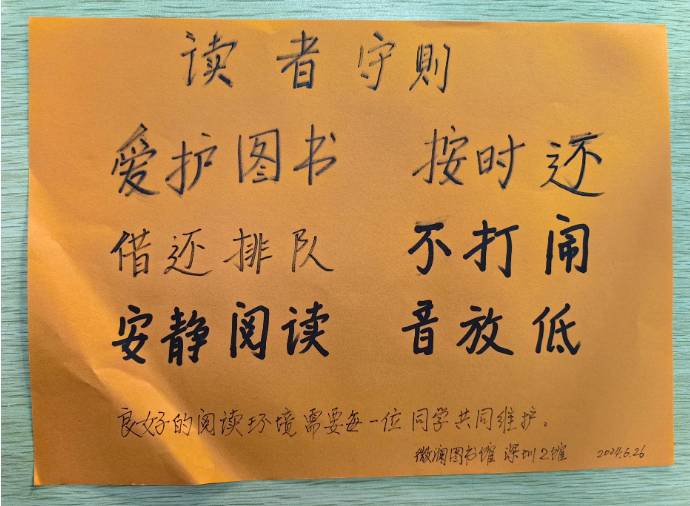 读者守则
爱护图书 按时还
借还排队 不打闹
安静阅读 音放低
良好的阅读环境需要每一位同学共同维护。
微澜图书馆 深圳2馆 2024.6.26